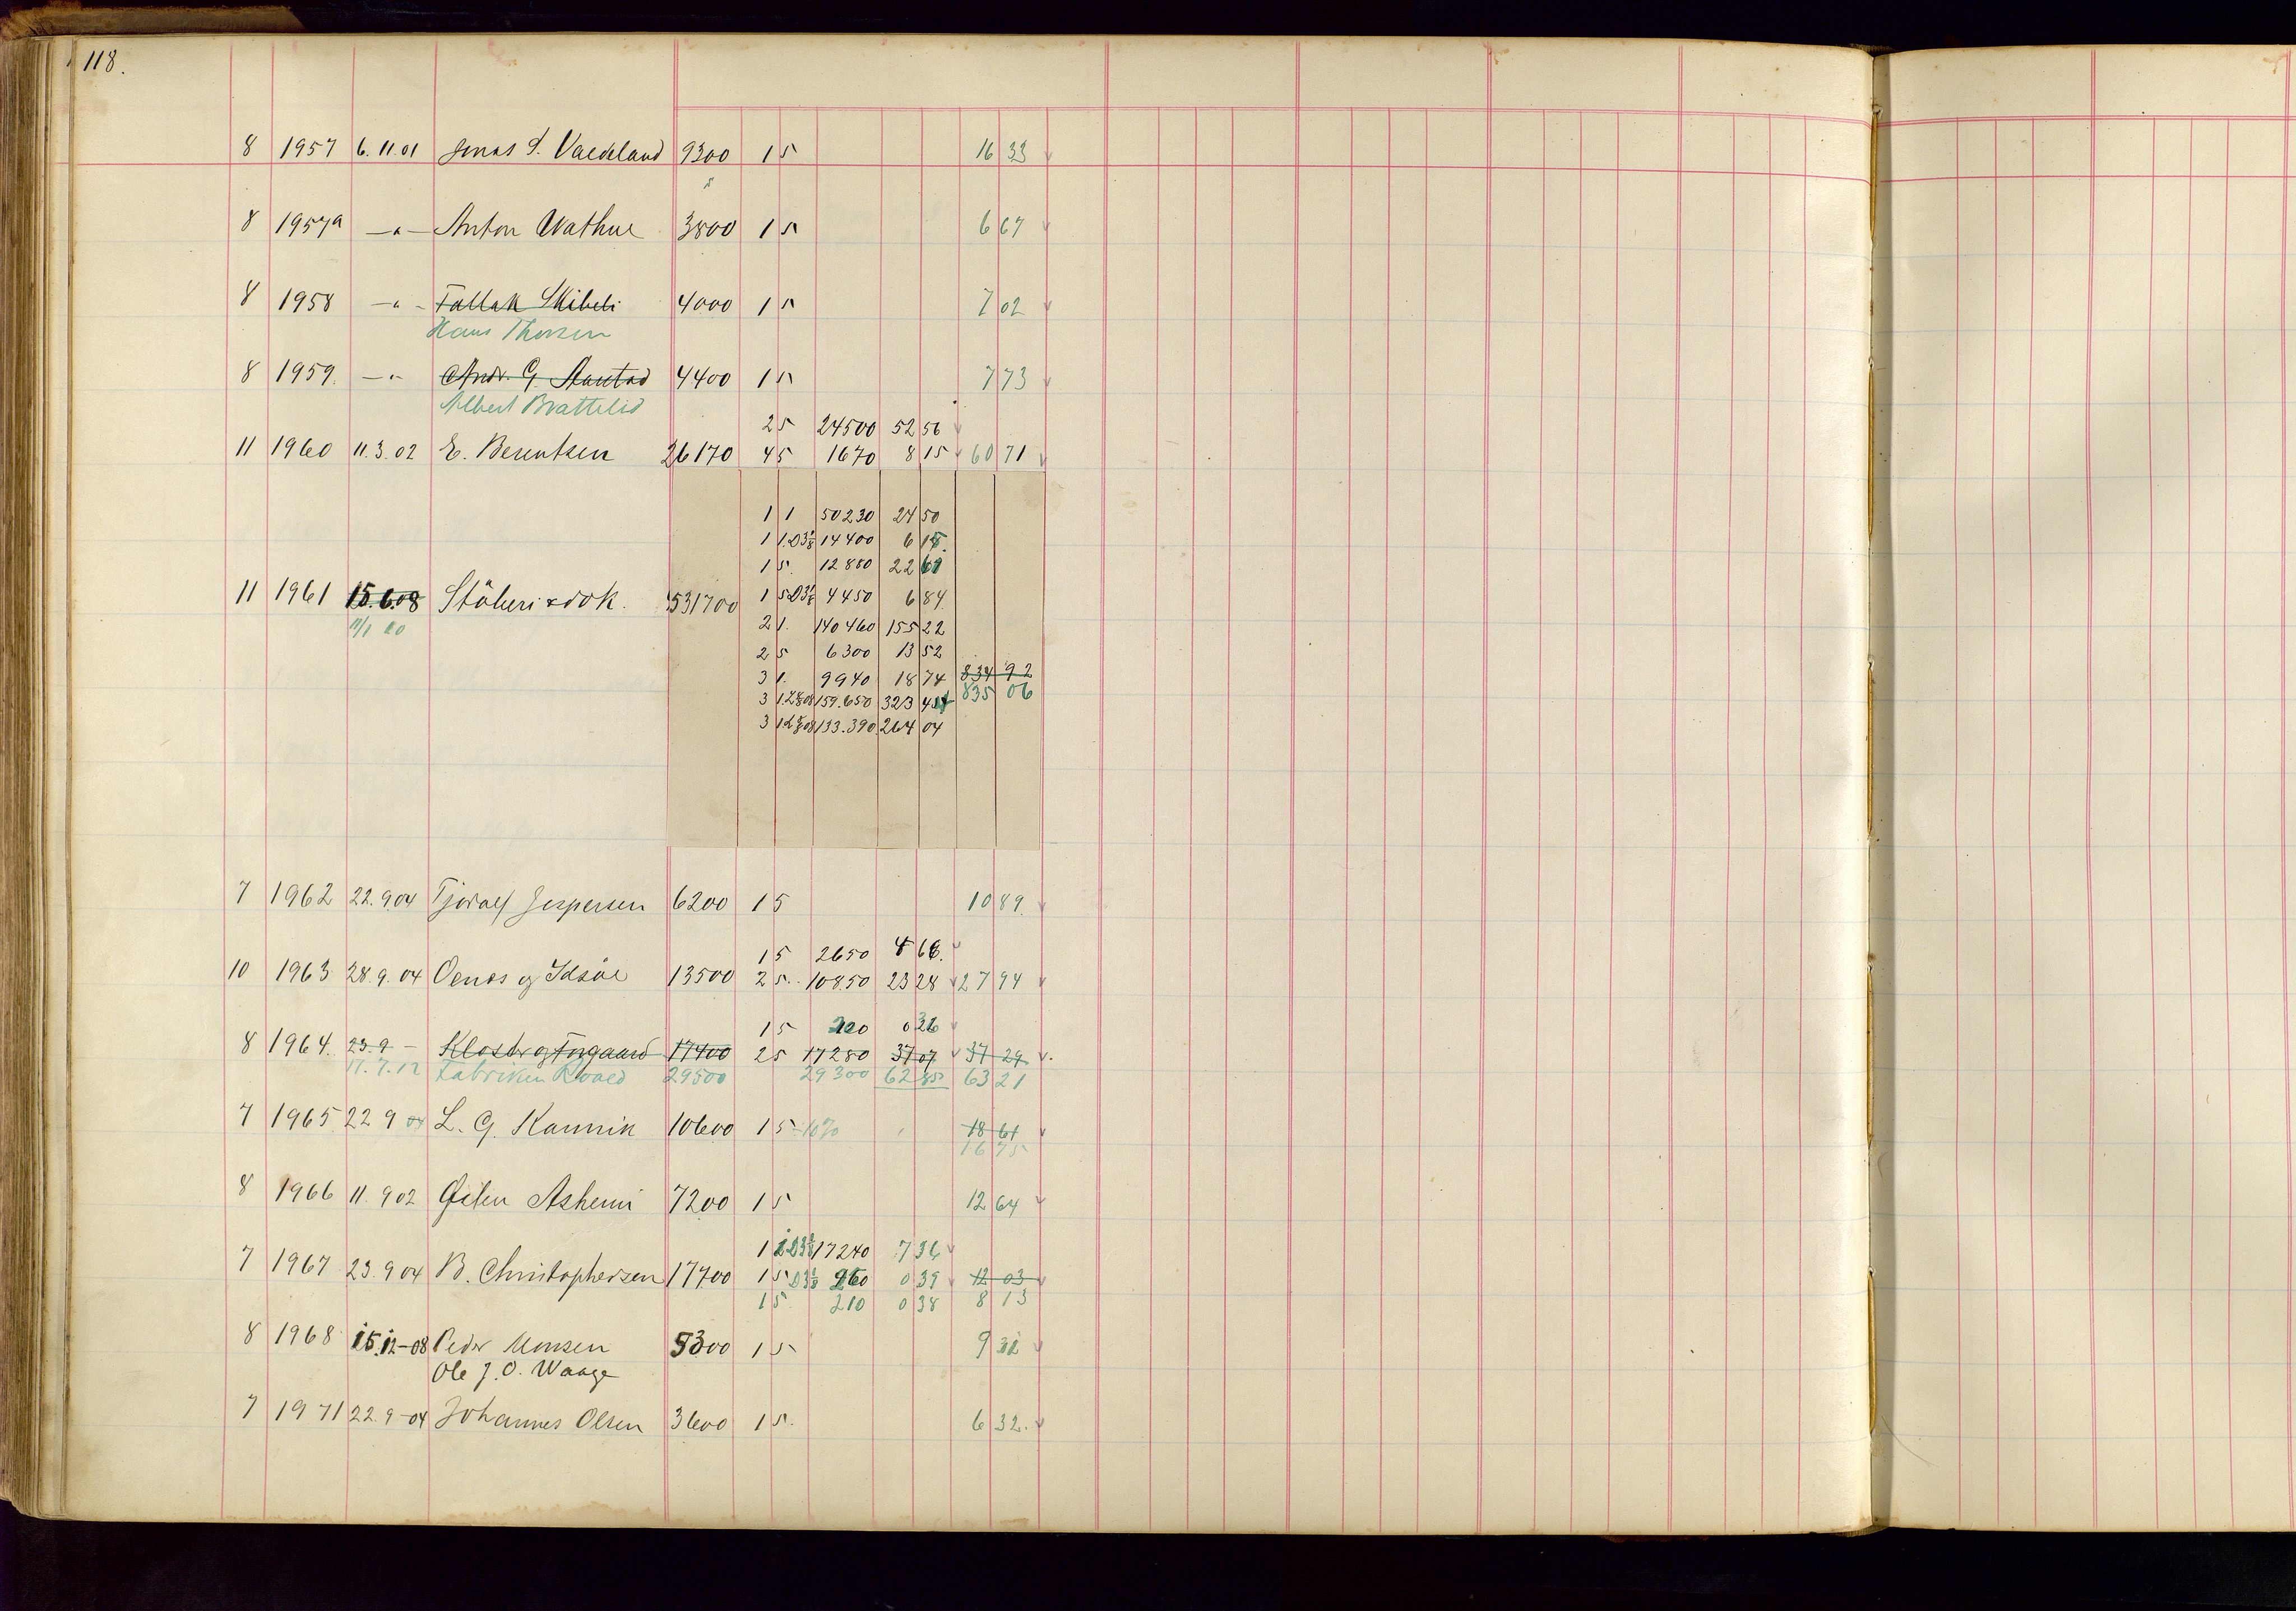 118.
8 1957 6.11.01 Jonas S. Vaeeland 9300 1 5 16 33
8 1957a —"— Anton Wathne 3800 1 5 6 67
8 1958 —"— Tallak Skibeli 4000 1 5 7 02
Hans Thorsen
8 1959. —"— Andr. G. Aantad 4400 1 5 7 73
Albert Brattelid
2 5 24500 52 56
11 1960 11.3.02 E. Berentsen 26170 4 5 1670 8 15 60 71
1 1 50230 24 50
1 1.D3⅓ 14400 6 15
1 5. 12880 22 61
11 1961 15.6.08 Stöberi & dok. 531700 1 5 D3⅓ 4450 6 84
11/1 20
2 1. 140460 155 22
2 5 6300 13 52
3 1. 9940 18 74 834 92
3 1. 159.650 323 835 06
3 1 133.390 264 04
7 1962 22.9.04 Tjoralf Jespersen 6200 1 5 10 89.
1 5 2650 4 66.
10 1963 28.9.04 Oenes og Idsöe 13500 2 5.. 10850 23 28 27 94
1 5 0 36
8 1964. 23.9 — Klosbr og Torgaard 17400 2 5 17280 37 07 37 29
11.7.12 Fabriken Roald 29500 29300 62 85 63 21
7 1965 22 9 04 L. G. Kannik 10600 1 5 – 10% 18 61
16 75
8 1966 11.9 02 Gitlen Asheim 7200 1 5 12 64
1 17240 7 36
7 1967 23.9 04 B. Christophersen 17700 1 5 D3⅓ 260 0 39 12 03
1 5 210 0 38 8 13
8 1968 15.12–08 Peder Monsen 5300 1 5 9 31
Ole J. O. Waage
7 1971 22.9–04 Johannes Olsen 3600 1 5. 6 32.